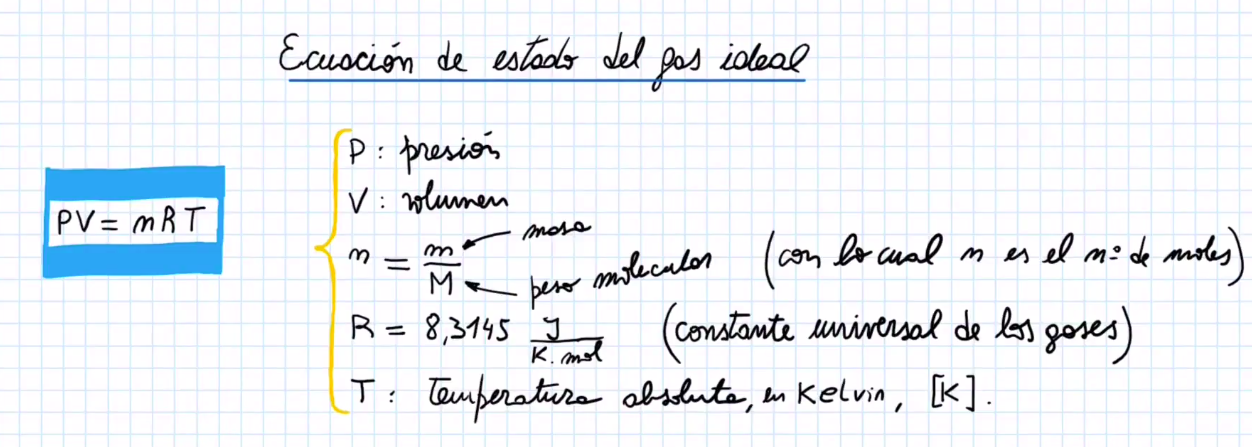 Ecuación de estado del gas ideal
P : presión
V : volumen
PV = nRT
n = m/M masa peso molecular (con lo cual n es el nº de moles)
R = 8,3145 J/K.mol (constante universal de los gases)
T : Temperatura absoluta, en Kelvin, [K].